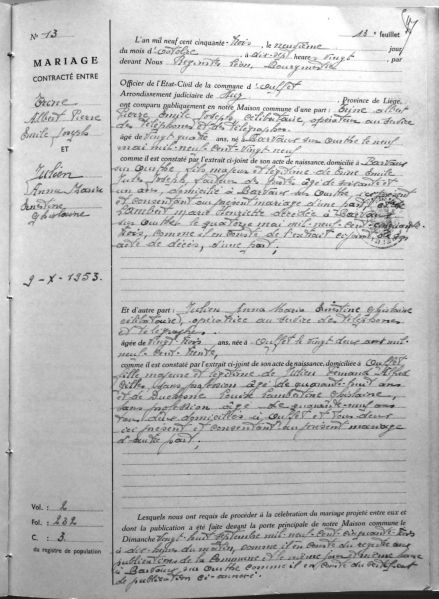 N° 13
MARIAGE
CONTRACTÉ ENTRE
Albert Pierre
Emile Joseph
ET
Julien
Anna Maria
Ernestine
Ghislaine
9-X-1953.
Vol. : 2
Fol. : 232
C. : 3
du registre de population
13e feuillet
L'an mil neuf cent cinquante-trois, le neuvième jour
du mois d'octobre à dix-sept heures vingt, par
devant Nous Bourgmestre
Officier de l'Etat-Civil de la commune d'Ouffet
Arrondissement judiciaire de Huy, Province de Liège,
ont comparu publiquement en notre Maison commune d'une part : Albert
Pierre Emile Joseph, célibataire, opérateur au service
des téléphones et des télégraphes
âgé de vingt quatre ans, né à Barvaux sur Ourthe le neuf
mai mil-neuf-cent-vingt-neuf
comme il est constaté par l'extrait ci-joint de son acte de naissance, domicilié à Barvaux
sur Ourthe, fils majeur et légitime de Emile
Jules Joseph, âgé de soixante et
un ans, domicilié à Barvaux sur Ourthe, ci-présent
et consentant au présent mariage d'une part et de
Lambert Marie Henriette décédée à Barvaux
sur Ourthe le quatorze mai mil-neuf-cent-cinquante-
trois, comme il en conste de l'extrait ci-joint de son
acte de décès, d'une part,
Et d'autre part : Julien Anna Maria Ernestine Ghislaine
célibataire, opératrice au service des téléphones
et télégraphes.
âgée de vingt trois ans, née à Ouffet le vingt deux avril mil-
neuf-cent-trente,
comme il est constaté par l'extrait ci-joint de son acte de naissance, domiciliée à Ouffet
fille majeure et légitime de Julien Fernand Alfred
Gilles, sans profession âgé de quarante-huit ans
et de Duchesne Louise Lambertine Ghislaine,
sans profession âgée de quarante-neuf ans
tous deux domiciliés à Ouffet et tous deux
ici présent et consentant au présent mariage
d'autre part;
Lesquels nous ont requis de procéder à la célébration du mariage projeté entre eux et
dont la publication a été faite devant la porte principale de notre Maison commune le
Dimanche vingt-huit septembre mil-neuf-cent-cinquante-trois
à dix heures du matin, comme il en conste du registre aux
publications de la commune et le même jour et même heure
à Barvaux sur Ourthe comme il en conste du certificat
de publication ci-annexé.